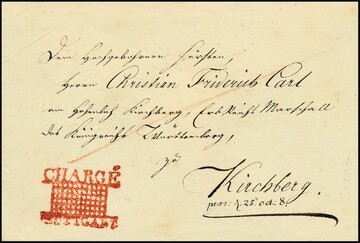 Dem Hochgebohrnen Fürsten,
Herrn Christian Friderich Carl
Hohenloh Kirchberg, Erb Reichs Marschall
des Königreichs Württemberg,
zu
Kirchberg.
CHARGÉ